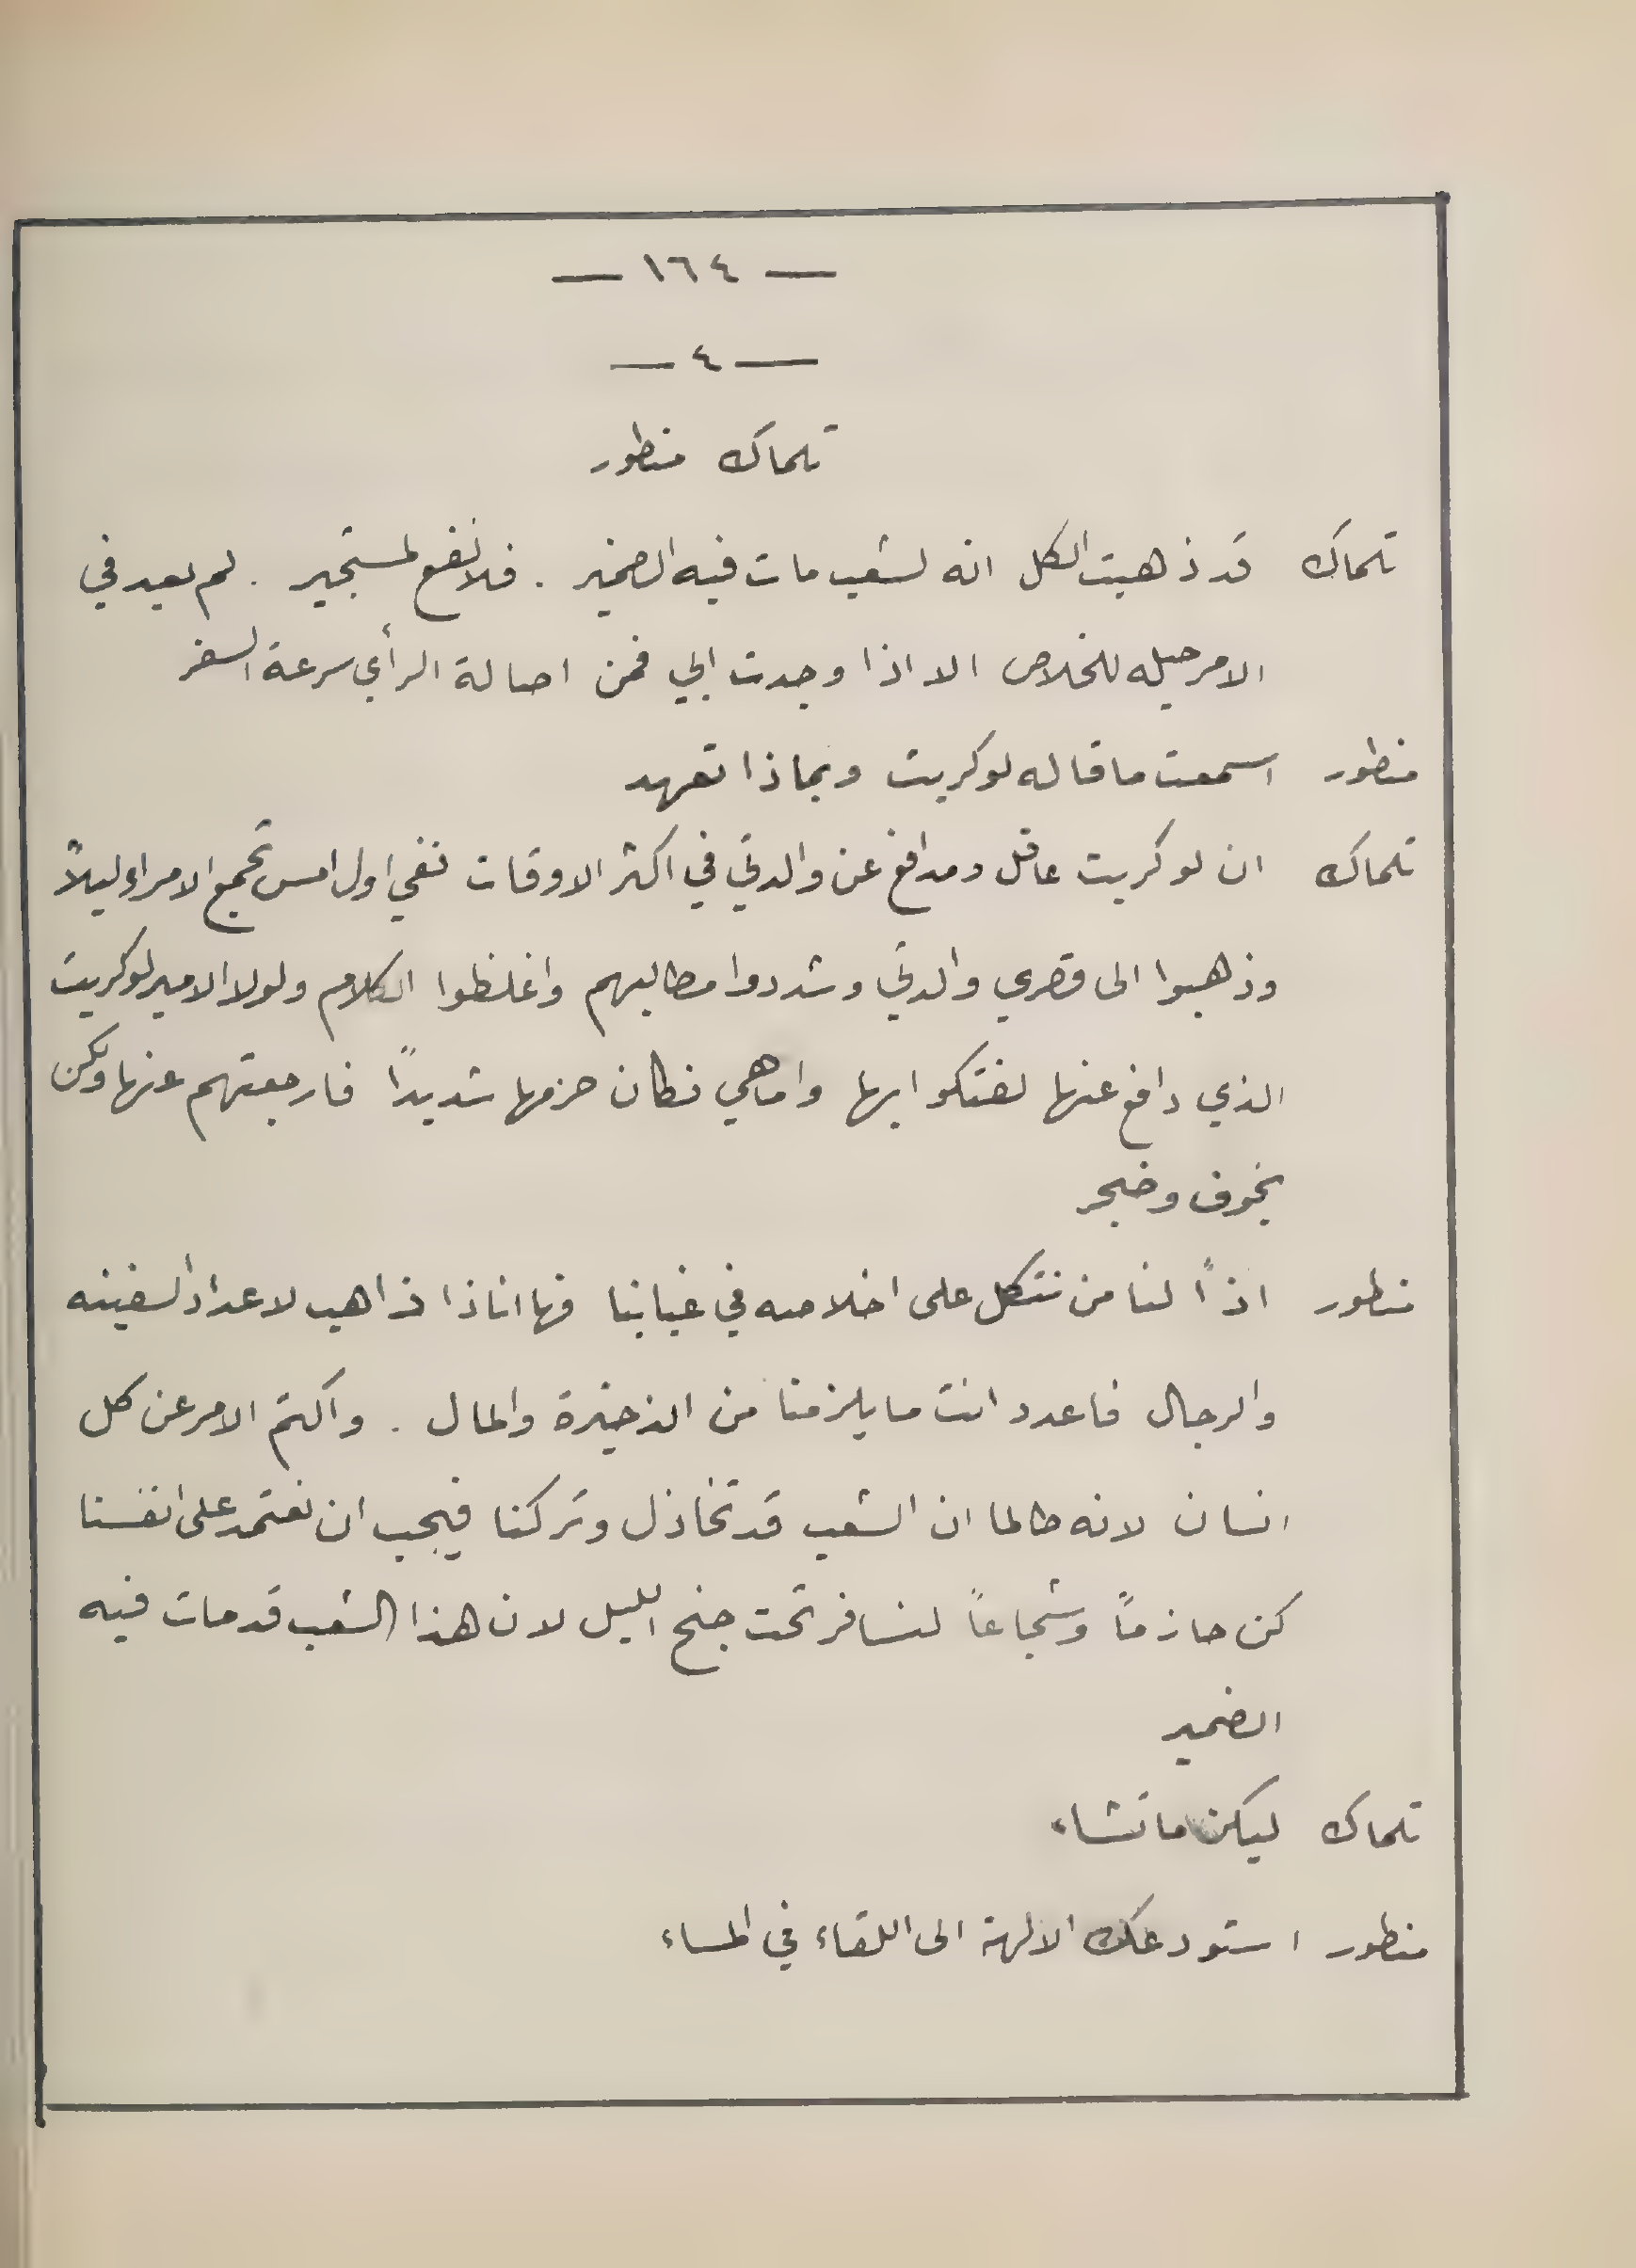 — ١٦٤ —
— ٤ —
تلماك منطور
تلماك قد ذهبت الكل انه لشعب مات فيه الضمير . فلا نفع لمستجير . لم يعد في
الامر حيله للخلاص الا اذا وجدت ابي فمن اصالة الرأي سرعة السفر
منطور اسمعت ما قاله لوكريت وبماذا تعهد
تلماك ان لوكريت عاقل ومدافع عن والدتي في اكثر الاوقات ففي اول امس تجمع الامراء ليلاً
وذهبوا الى قصري والدتي وشددوا مطاليبهم واغلظوا الكلام ولولا الامير لوكريت
الذي دافع عنها لفتكوا بها واما هي فكان حزمها شديداً فارجعتهم عنها ولكن
بخوف وضجر
منطور اذاً لنا من نتكل على اخلاصه في غيابنا فها انا ذا ذاهب لاعداد السفينه
والرجال فاعدد انت ما يلزمنا من الذخيرة والمال . واكتم الامر عن كل
انسان لانه طالما ان الشعب قد تخاذل وتركنا فيجب ان نعتمد على انفسنا
كن حازماً وشجاعاً لنسافر تحت جنح الليل لان هذا الشعب قد مات فيه
الضمير
تلماك ليكن ما تشاء
منطور استودعك الالهة الى اللقاء في المساء